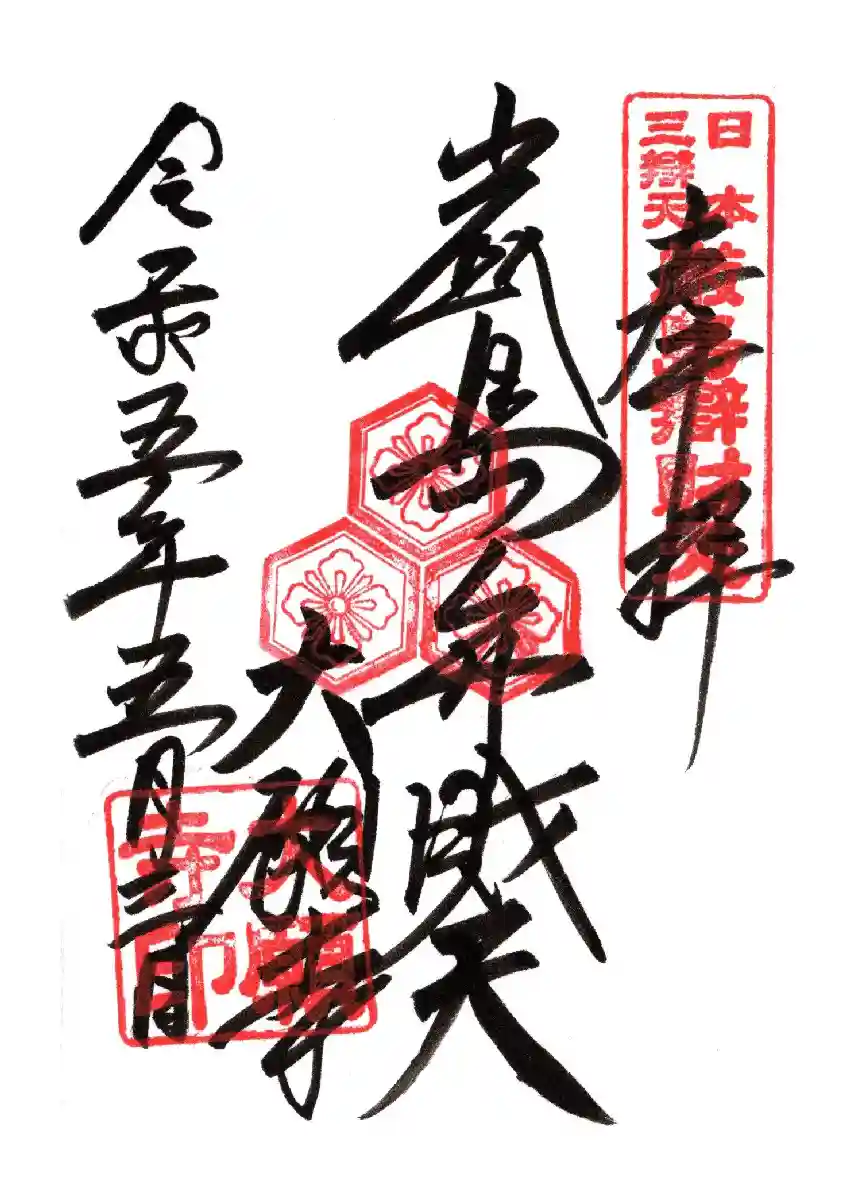 奉拝
日本
三辯天
厳島辯財天
厳島弁財天
大願寺
大願
寺印
令和五年五月三日